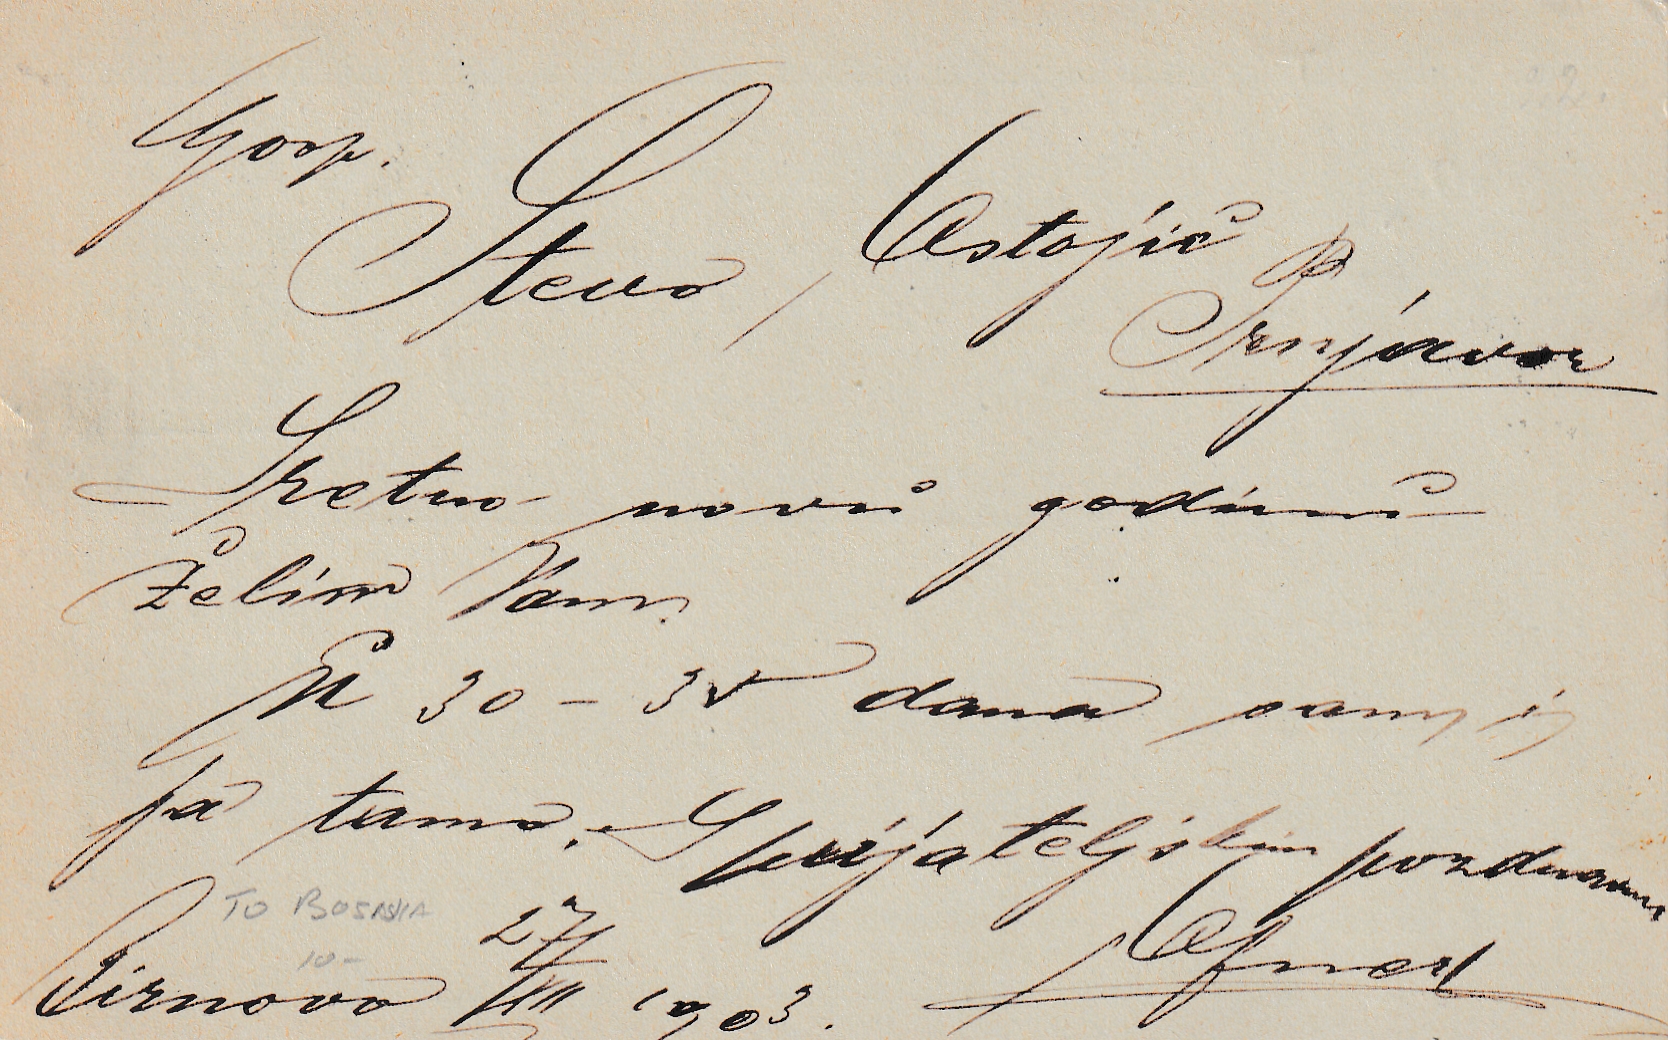 Gosp.
Stevo Ostojić
Prnjavor
Sretnu novu godinu
Želim Vam.
Za 30 – 35 dana sam i
ja tamo. S prijateljskim pozdravom
TO BOSNIA
10-
27/XII 1903.